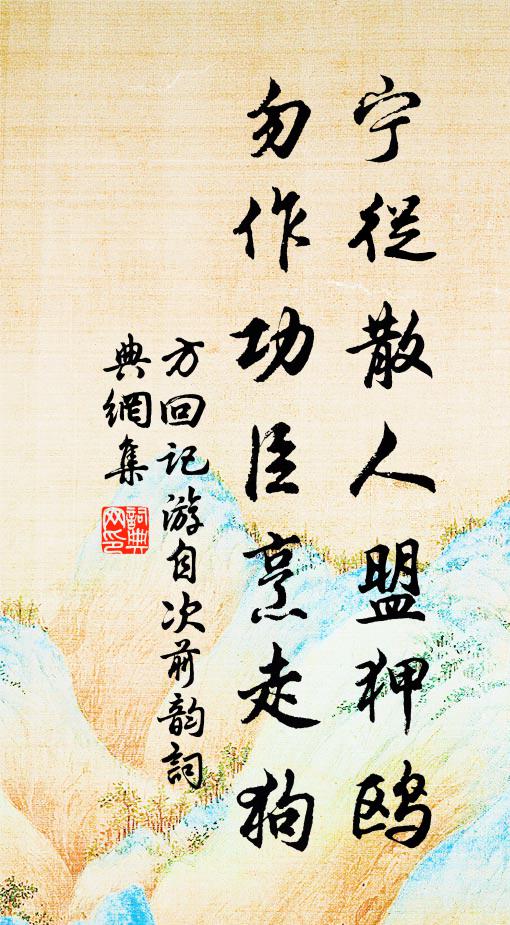 宁從散人盟狎鸥
勿作功臣烹走狗
方回记游自次前韵詞
典網集
詞典网印